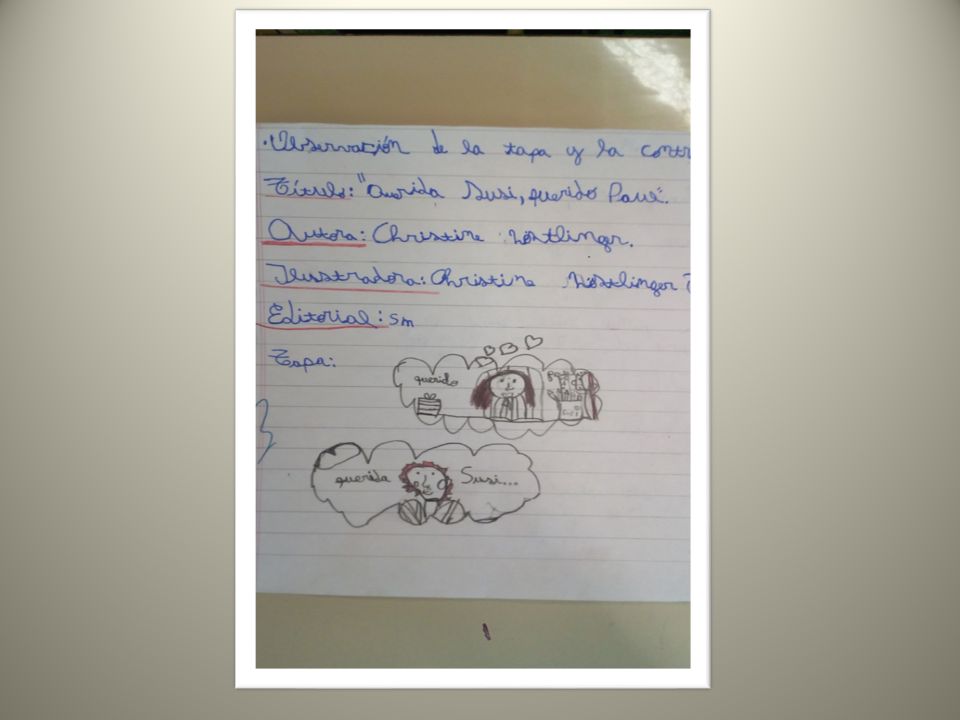 ·Observación de la tapa y la contr
Título: "Querida Susi, querido Paul".
Autora: Christine Nöstlinger.
Ilustradora: Christine Nöstlinger
Editorial: sm
Tapa:
querido
querida Susi...